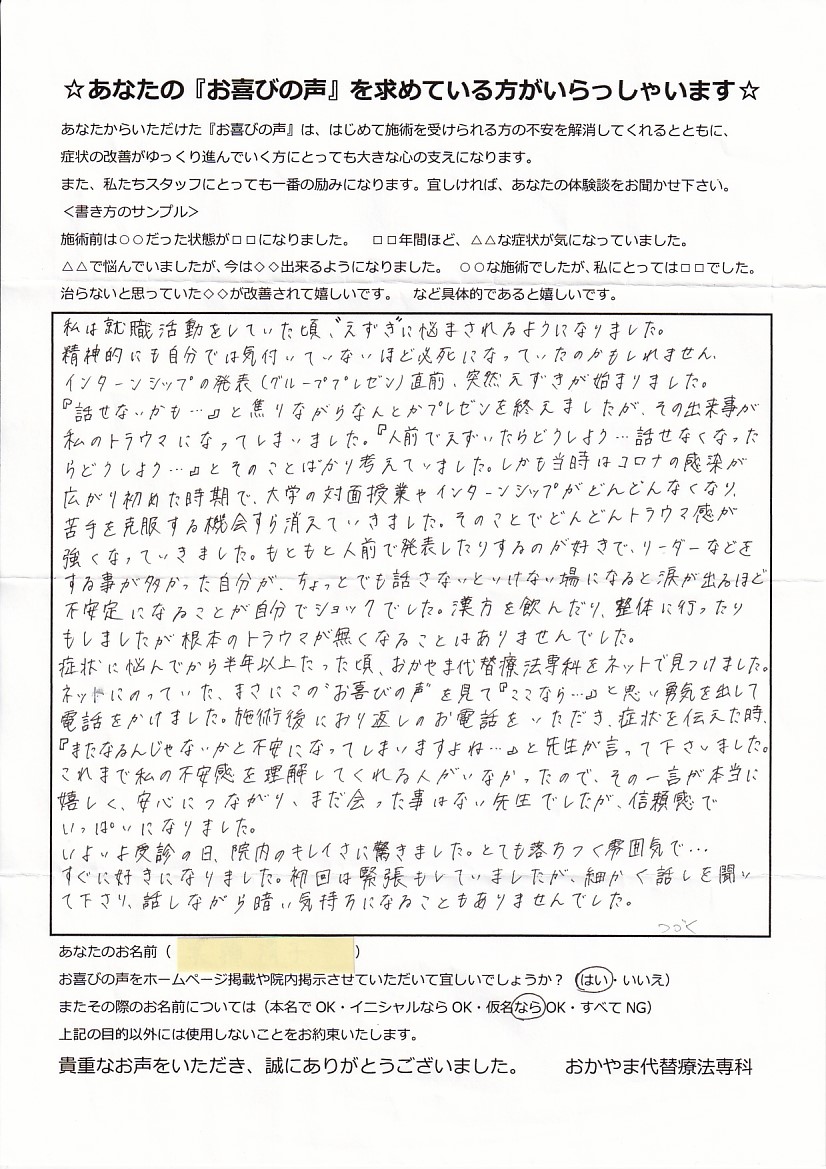 ☆あなたの『お喜びの声』を求めている方がいらっしゃいます☆
あなたからいただけた『お喜びの声』は、はじめて施術を受けられる方の不安を解消してくれるとともに、
症状の改善がゆっくり進んでいく方にとっても大きな心の支えになります。
また、私たちスタッフにとっても一番の励みになります。宜しければ、あなたの体験談をお聞かせ下さい。
＜書き方のサンプル＞
施術前は○○だった状態が□□になりました。　□□年間ほど、△△な症状が気になっていました。
△△で悩んでいましたが、今は◇◇出来るようになりました。　○○な施術でしたが、私にとっては□□でした。
治らないと思っていた◇◇が改善されて嬉しいです。　など具体的であると嬉しいです。
私は就職活動をしていた頃、"えずき"に悩まされるようになりました。
精神的にも自分では気付いていないほど必死になっていたのかもしれません、
インターンシップの発表(グループプレゼン)直前、突然えずきが始まりました。
『話せないかも…』と焦りながらなんとかプレゼンを終えましたが、その出来事が
私のトラウマになってしまいました。『人前でえずいたらどうしよう…話せなくなった
らどうしよう…』とそのことばかり考えていました。しかも当時はコロナの感染が
広がり初めた時期で、大学の対面授業やインターンシップがどんどんなくなり、
苦手を克服する機会すら消えていきました。そのことでどんどんトラウマ感が
強くなっていきました。もともと人前で発表したりするのが好きで、リーダーなどを
する事が多かった自分が、ちょっとでも話さないといけない場になると涙が出るほど
不安定になることが自分でショックでした。漢方を飲んだり、整体に行ったり
もしましたが根本のトラウマが無くなることはありませんでした。
症状に悩んでから半年以上たった頃、おかやま代替療法専科をネットで見つけました。
ネットにのっていた、まさにこの"お喜びの声"を見て『ここなら…』と思い勇気を出して
電話をかけました。施術後におり返しのお電話をいただき、症状を伝えた時、
『またなるんじゃないかと不安になってしまいますよね…』と先生が言って下さいました。
これまで私の不安感を理解してくれる人がいなかったので、その一言が本当に
嬉しく、安心につながり、まだ会った事はない先生でしたが、信頼感で
いっぱいになりました。
いよいよ受診の日、院内のキレイさに驚きました。とても落ちつく雰囲気で…
すぐに好きになりました。初回は緊張もしていましたが、細かく話しを聞い
て下さり、話しながら暗い気持ちになることもありませんでした。
つづく
あなたのお名前（　　　　　　　　　　）
お喜びの声をホームページ掲載や院内掲示させていただいて宜しいでしょうか？（はい・いいえ）
またその際のお名前については（本名でOK・イニシャルならOK・仮名ならOK・すべてNG）
上記の目的以外には使用しないことをお約束いたします。
貴重なお声をいただき、誠にありがとうございました。　　おかやま代替療法専科